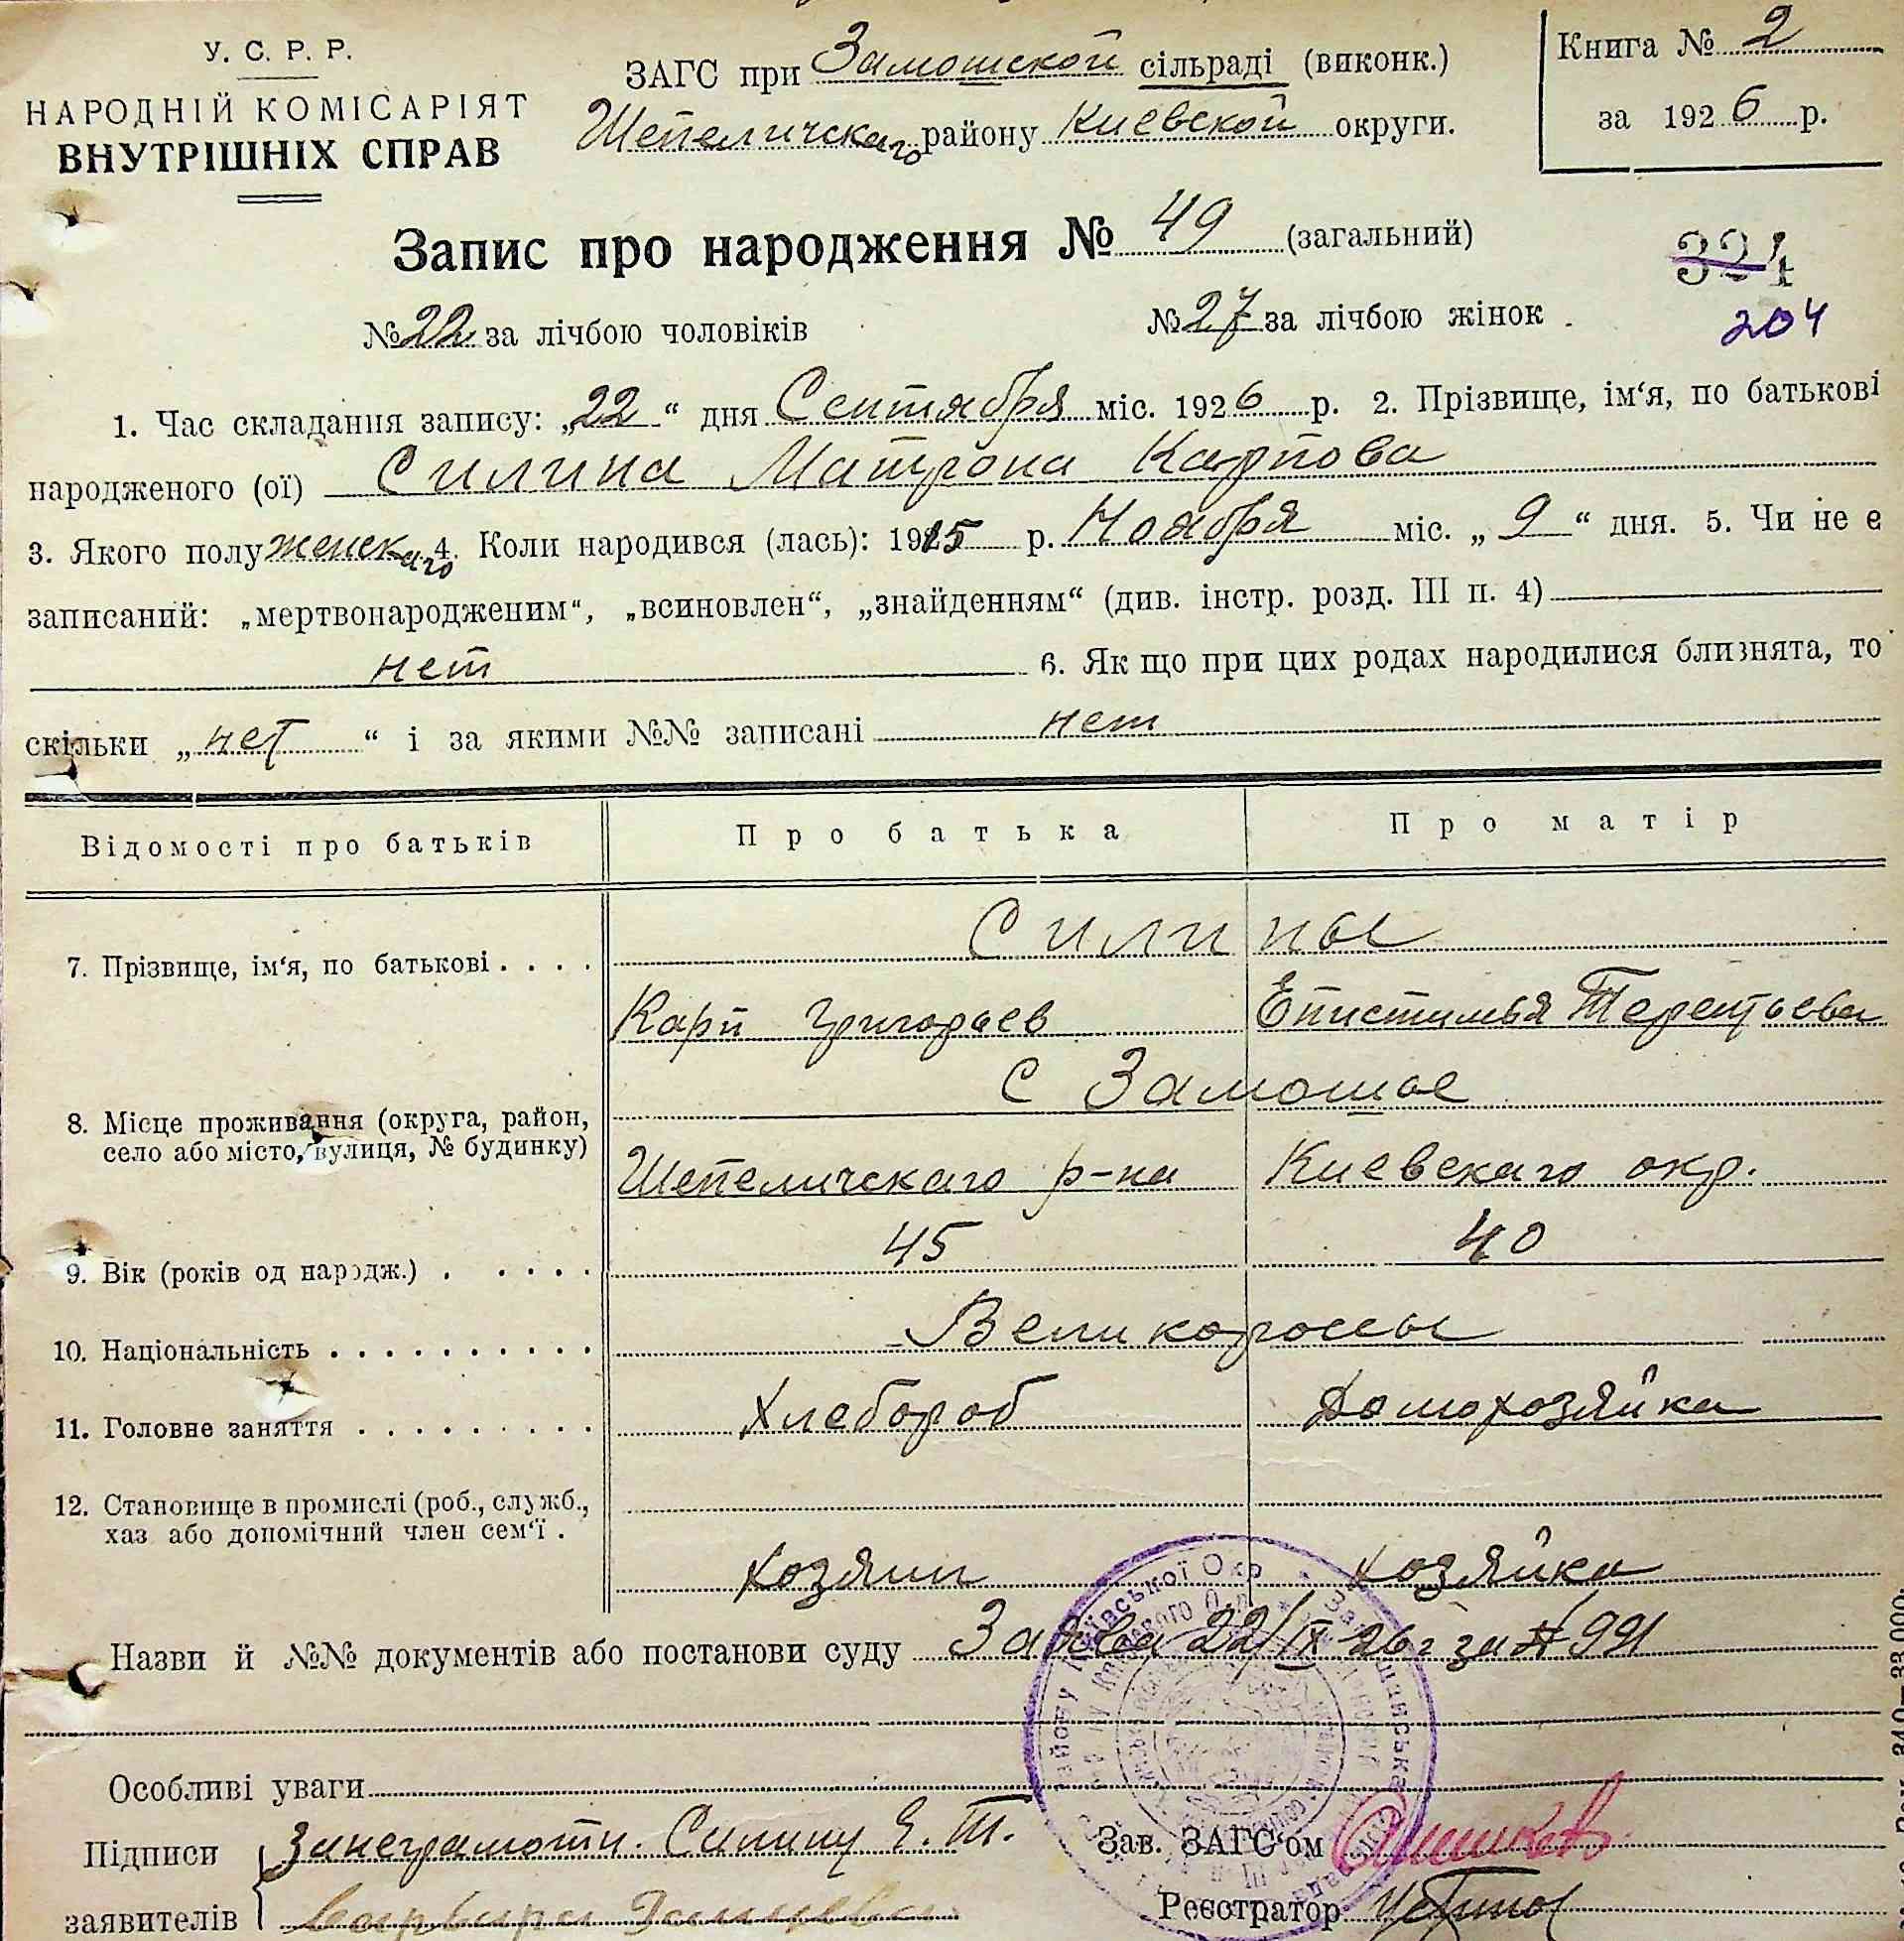 У. С. Р. Р.
НАРОДНІЙ КОМІСАРІЯТ
ВНУТРІШНІХ СПРАВ
ЗАГС при Замошской сільраді (виконк.)
Шепеличскаго району Киевской округи.
Книга № 2
за 1926 р.
Запис про народження № 49 (загальний)
324
№ 22 за лічбою чоловіків № 27 за лічбою жінок
204
1. Час складання запису: „22“ дня Сентября міс. 1926 р. 2. Прізвище, ім‘я, по батькові
народженого (ої) Силина Матрона Карпова
3. Якого полу женскаго 4. Коли народився (лась): 1915 р. Ноября міс. „9“ дня. 5. Чи не є
записаний: „мертвонародженим“, „всиновлен“, „знайденням“ (див. інстр. розд. III п. 4)
нет 6. Як що при цих родах народилися близнята, то
скільки „нет“ і за якими №№ записані нет
Відомості про батьків Про батька Про матір
Силины
7. Прізвище, ім‘я, по батькові . . . .
Карп Григорьев Епистимья Терентьева
С Замошье
8. Місце проживання (округа, район,
село або місто, вулиця, № будинку)
Шепеличскаго р-на Киевскаго окр.
45 40
9. Вік (років од народж.) . . . . .
10. Національність . . . . . . . . . . Великороссы
11. Головне заняття . . . . . . . . . Хлебороб Домохозяйка
12. Становище в промислі (роб., служб.,
хаз або допомічний член сем‘ї .
Хозяин Хозяйка
Назви й №№ документів або постанови суду Заява 22/IX-26 г за № 991
Особливі уваги
Підписи За неграмотн. Силину Е. Т. Зав. ЗАГС‘ом
заявителів Реєстратор